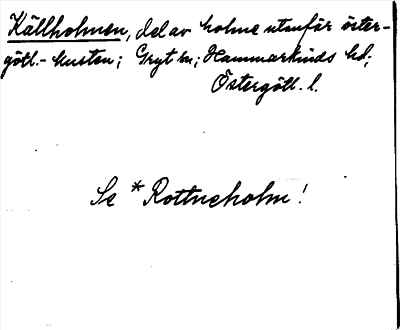 Källholmen, del av holme utanför öster-
götl.-kusten; Gryt sn; Hammarkinds hd;
Östergötl. l.
Se *Rottneholm!